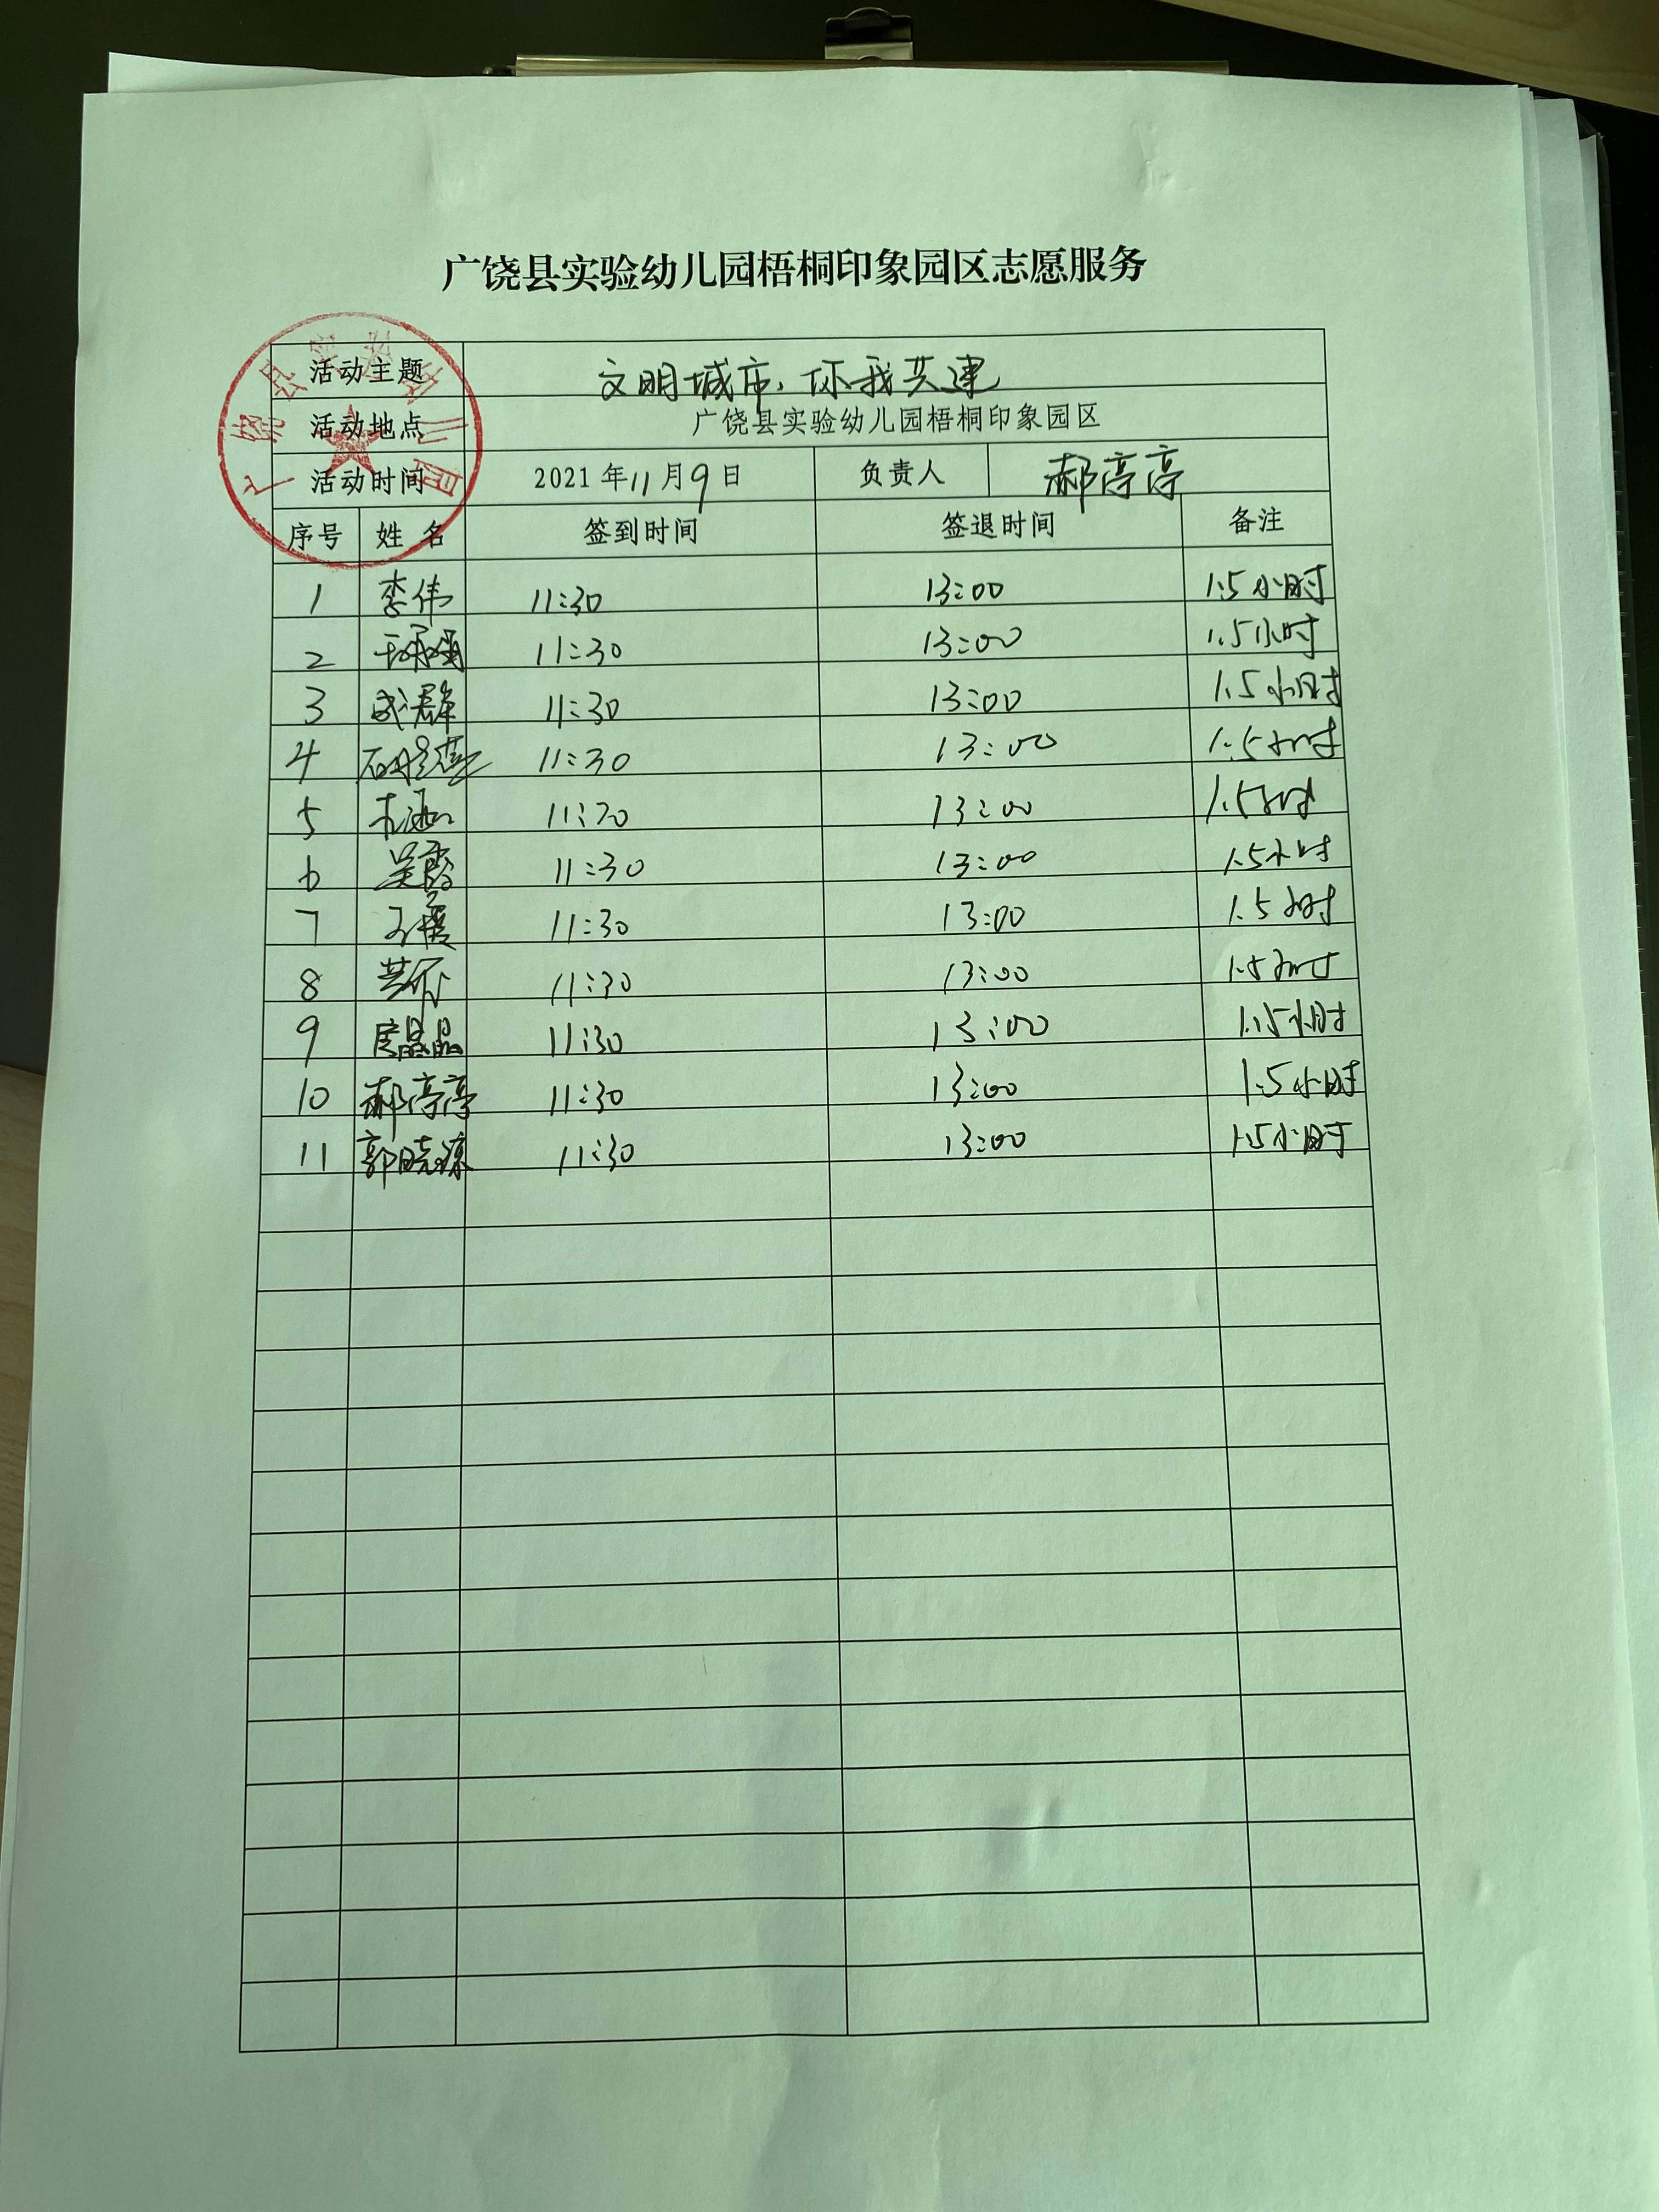 广饶县实验幼儿园梧桐印象园区志愿服务
广饶县实验幼儿园
活动主题 文明城市,你我共建
活动地点 广饶县实验幼儿园梧桐印象园区
活动时间 2021年11月9日 负责人 郝亭亭
序号 姓名 签到时间 签退时间 备注
1 李伟 11:30 13:00 1.5小时
2 11:30 13:00 1.5小时
3 成群 11:30 13:00 1.5小时
4 11:30 13:00 1.5小时
5 11:30 13:00 1.5小时
6 吴霞 11:30 13:00 1.5小时
7 11:30 13:00 1.5小时
8 11:30 13:00 1.5小时
9 晶晶 11:30 13:00 1.5小时
10 郝亭亭 11:30 13:00 1.5小时
11 郭晓 11:30 13:00 1.5小时